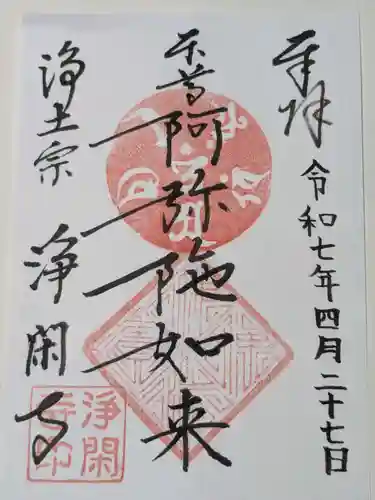 奉拝
令和七年四月二十七日
本尊
阿弥陀如来
浄土宗
浄閑寺
浄閑
寺印